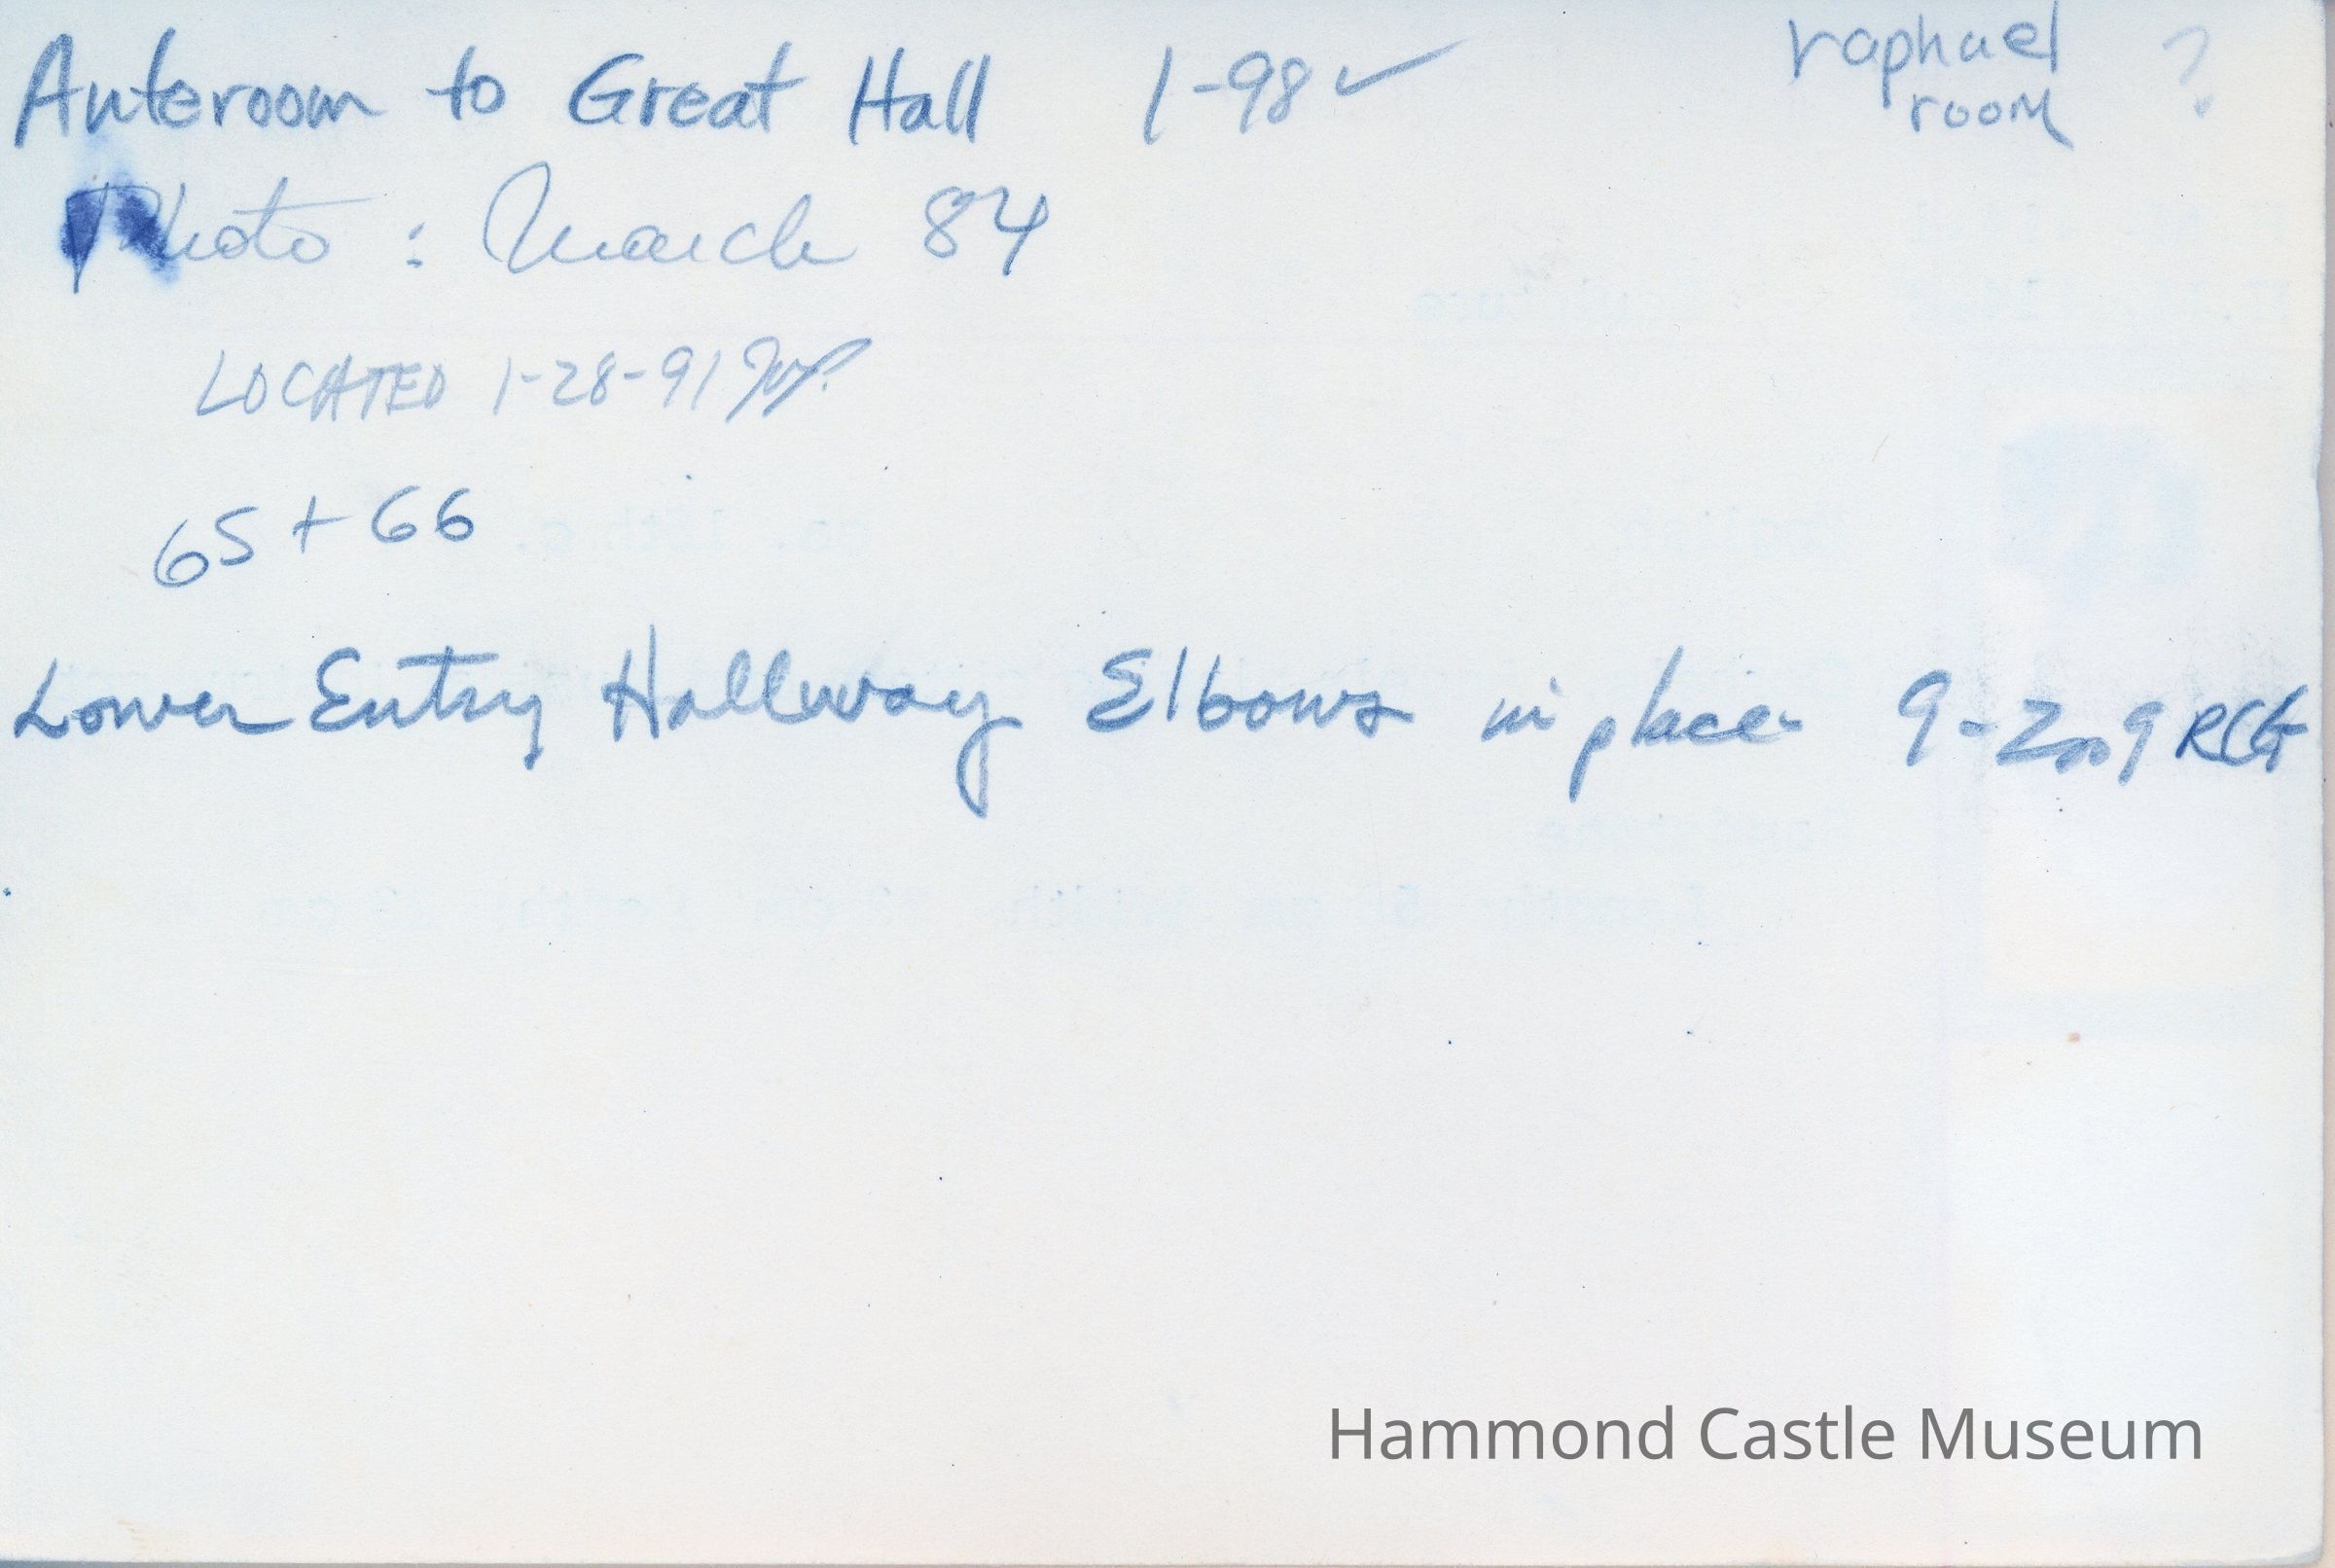 Anteroom to Great Hall 1-98 ✓ raphael room ?
Photo : March 84
LOCATED 1-28-91
65 + 66
Lower Entry Hallway Elbows in place 9-2009 RCG
Hammond Castle Museum